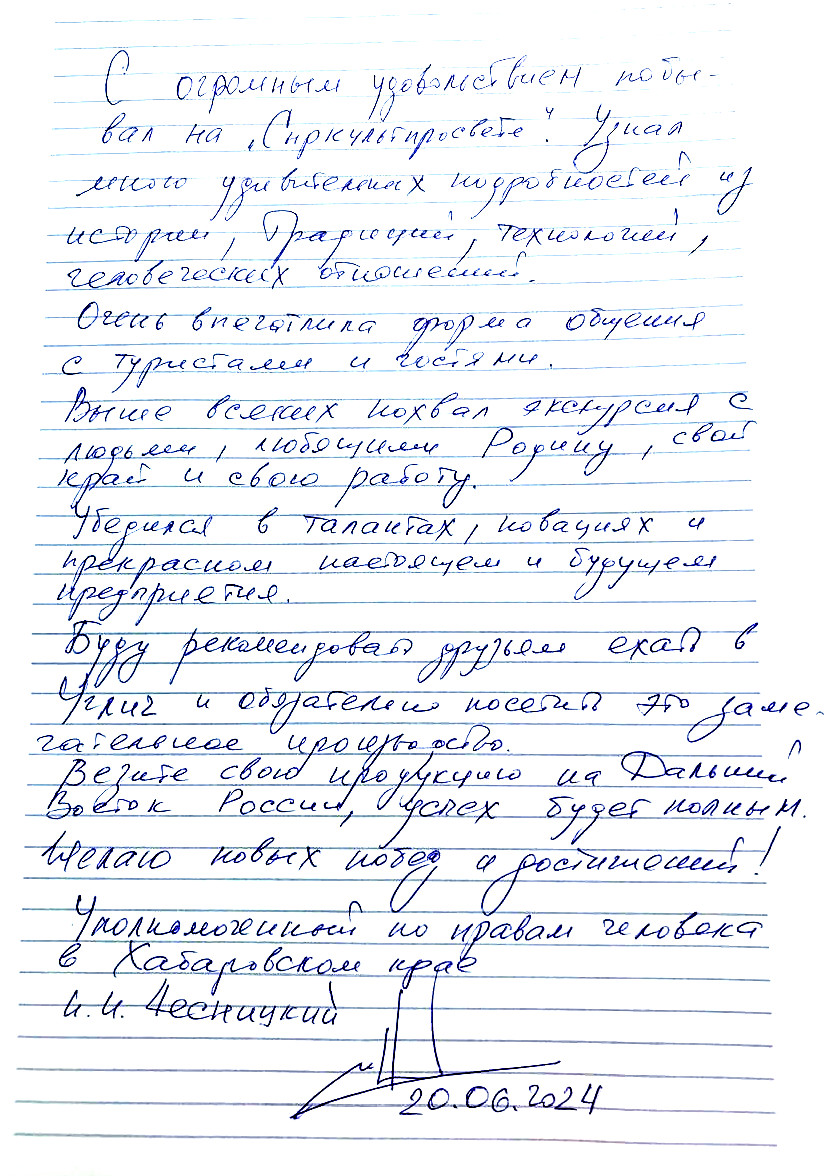 С огромным удовольствием побы-
вал на „Сыркультпросвете". Узнал
много удивительных подробностей из
истории, традиций, технологий,
человеческих отношений.
Очень впечатлила форма общения
с туристами и гостями.
Выше всяких похвал экскурсия с
людьми, любящими Родину, свой
край и свою работу.
Убедился в талантах, новациях и
прекрасном настоящем и будущем
предприятия.
Буду рекомендовать друзьям ехать в
Углич и обязательно посетить это заме-
чательное производство.
Везите свою продукцию на Дальний
Восток России, успех будет полным.
Желаю новых побед и достижений!
Уполномоченный по правам человека
в Хабаровском крае
И.И. Чесницкий
20.06.2024